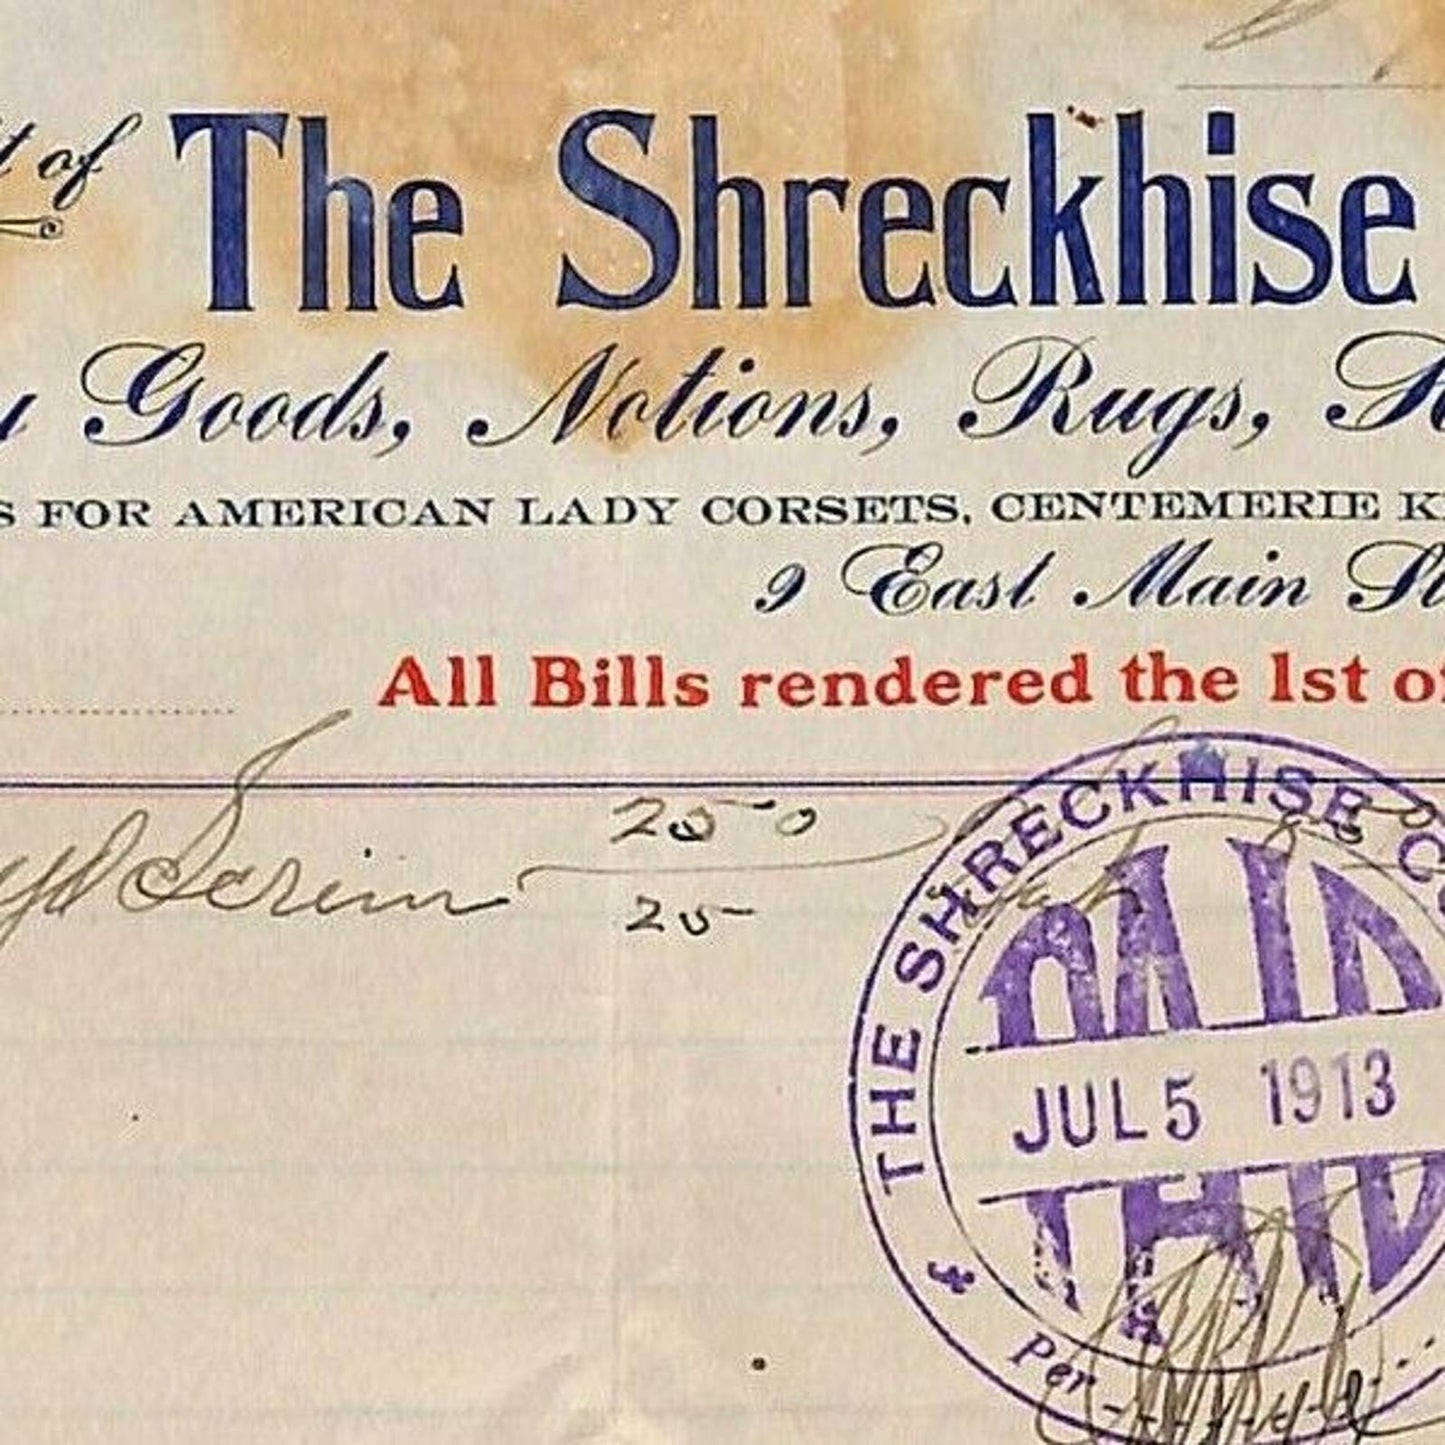 t of The Shreckhise
y Goods, Notions, Rugs,
S FOR AMERICAN LADY CORSETS, CENTEMERIE K
9 East Main St
All Bills rendered the 1st of
yd Scrim
25 0
25
THE SHRECKHISE CO
PAID
JUL 5 1913
Per